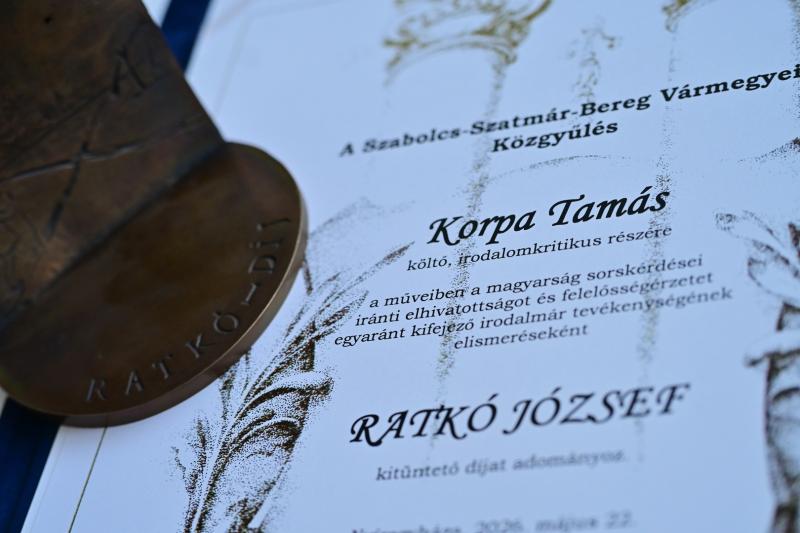 A Szabolcs-Szatmár-Bereg Vármegyei
Közgyűlés
Korpa Tamás
költő, irodalomkritikus részére
a műveiben a magyarság sorskérdései
iránti elhivatottságot és felelősségérzetet
egyaránt kifejező irodalmár tevékenységének
elismeréseként
RATKÓ JÓZSEF
kitüntető díjat adományoz.
Nyíregyháza, 2026. május 22.
RATKÓ-DÍJ